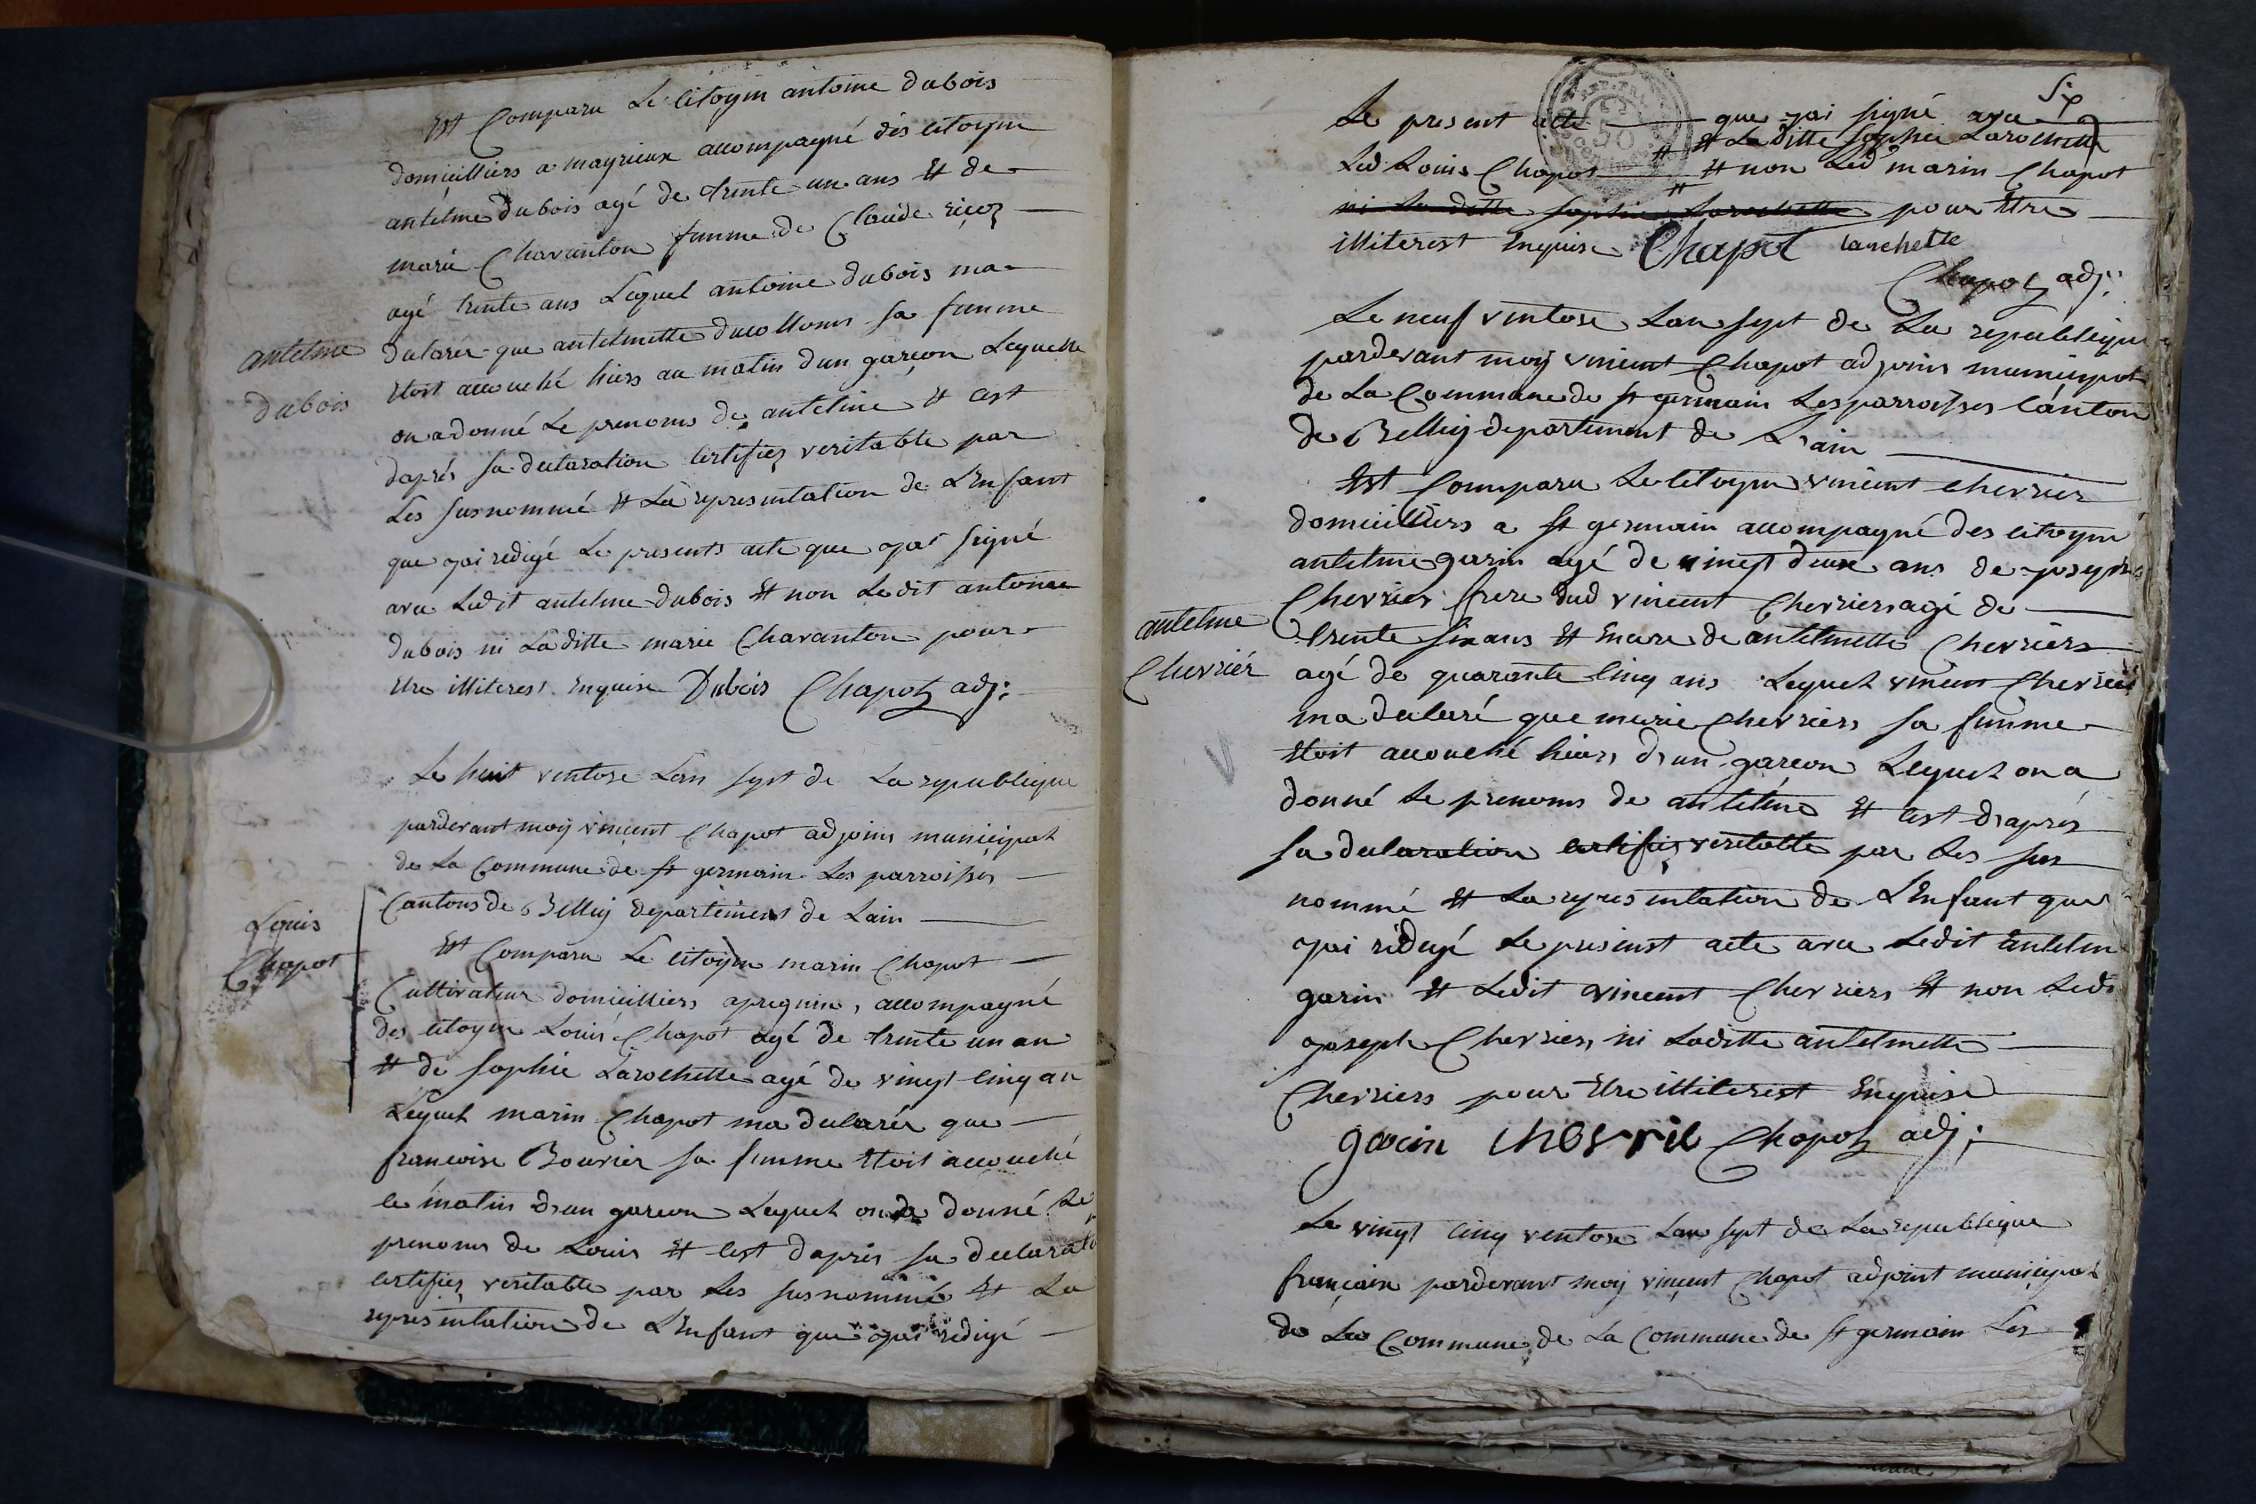 Est Comparu Le Citoyen antoine dubois
domicilliers a mayrieux accompagné des citoyen
antelme dubois agé de trente un ans Et de
marie Charanton femme de Claude
agé trente ans Lequel antoine dubois ma
antelme
dubois
declarér que antelmette ducollomb sa femme
Etoit accouché hiers au matin dun garçon Lequelle
on a donné Le prenoms de antelme Et cest
daprés sa declaration certifiez veritable par
Les susnommé Et La representation de LEnfant
que jai redigé Le presents acte que jai signé
avec Ledit antelme dubois Et non Ledit antoine
dubois ni Laditte marie Charanton pour
Etre illiterest Enquise Dubois Chapot adj:
Le huit ventose Lan sept de La republique
pardevant moy vincent Chapot adjoins municipal
de La Commune de st germain Les parroisses
Cantons de Belley departement de Lain
Louis
Chapot
Est Comparu Le citoyen marin Chapot
Cultivateur domicilliers apregnin, accompagné
des citoyen Louis Chapot agé de trente un an
Et de sophie Larochette agé de vingt cinq an
Lequel marin Chapot ma declarér que
francoise Bouvier sa femme Etoit accouché
ce matin dun garcon Lequel on a donné Le
prenoms de Louis Et cest daprés sa declarati
certifiez veritable par Les susnommé Et La
representation de LEnfant que jai redigé
Six
Le present acte que jai signé avec
# Laditte sophie Larochette
Led. Louis Chapot # Et non Led marin Chapot
ni La ditte sophie Larochette pour Etre
illiterest Enquise Chapot larochette
Chapot adj:
Le neuf ventose Lan sept de La republique
pardevant moy vincent Chapot adjoins municipal
de La Commune de st germain Les parroisses Canton
de Belley departement de Lain
Est Comparu Le Citoyen vincent Chevrier
domicilliers a st germain accompagné des citoyen
antelme garin agé de vingt deux ans de joseph
Chevrier frere dud vincent Chevriers agé de
antelme
Chevriér
trente six ans Et Encore de antelmette Chevriers
agé de quarante Cinq ans Lequel vincent Chevrier
ma declaré que marie Chevriers sa femme
Etoit accouché hiers dun garcon Lequel on a
donné Le prenoms de antelme Et cest daprés
sa declaration certifiez veritable par Les sus
nommé Et La representation de LEnfant que
jai redigé Le presenst acte avec Ledit antelm
garin Et Ledit vincent Chevriers Et non Led
joseph Chevriers ni Laditte antelmette
Chevriers pour Etre illiterest Enquise
garin Chevrie Chapot adj:
Le vingt cinq ventose Lan sept de La republique
francaise pardevant moy vincent Chapot adjoint municipal
de La Commune de La Commune de st germain Les